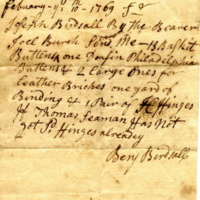 February - 10 - 1769
Joseph Birdsall By the Bearer
Joel Burch Send Me - 18 Baskit
Buttens one Dosin Philadelphia
Buttens & 2 Large Ones for
Leather Briches one yard of
Binding & 1 Pair of H Hinges
if Thomas Seaman Has Not
got Hinges already
Benj Birdsall